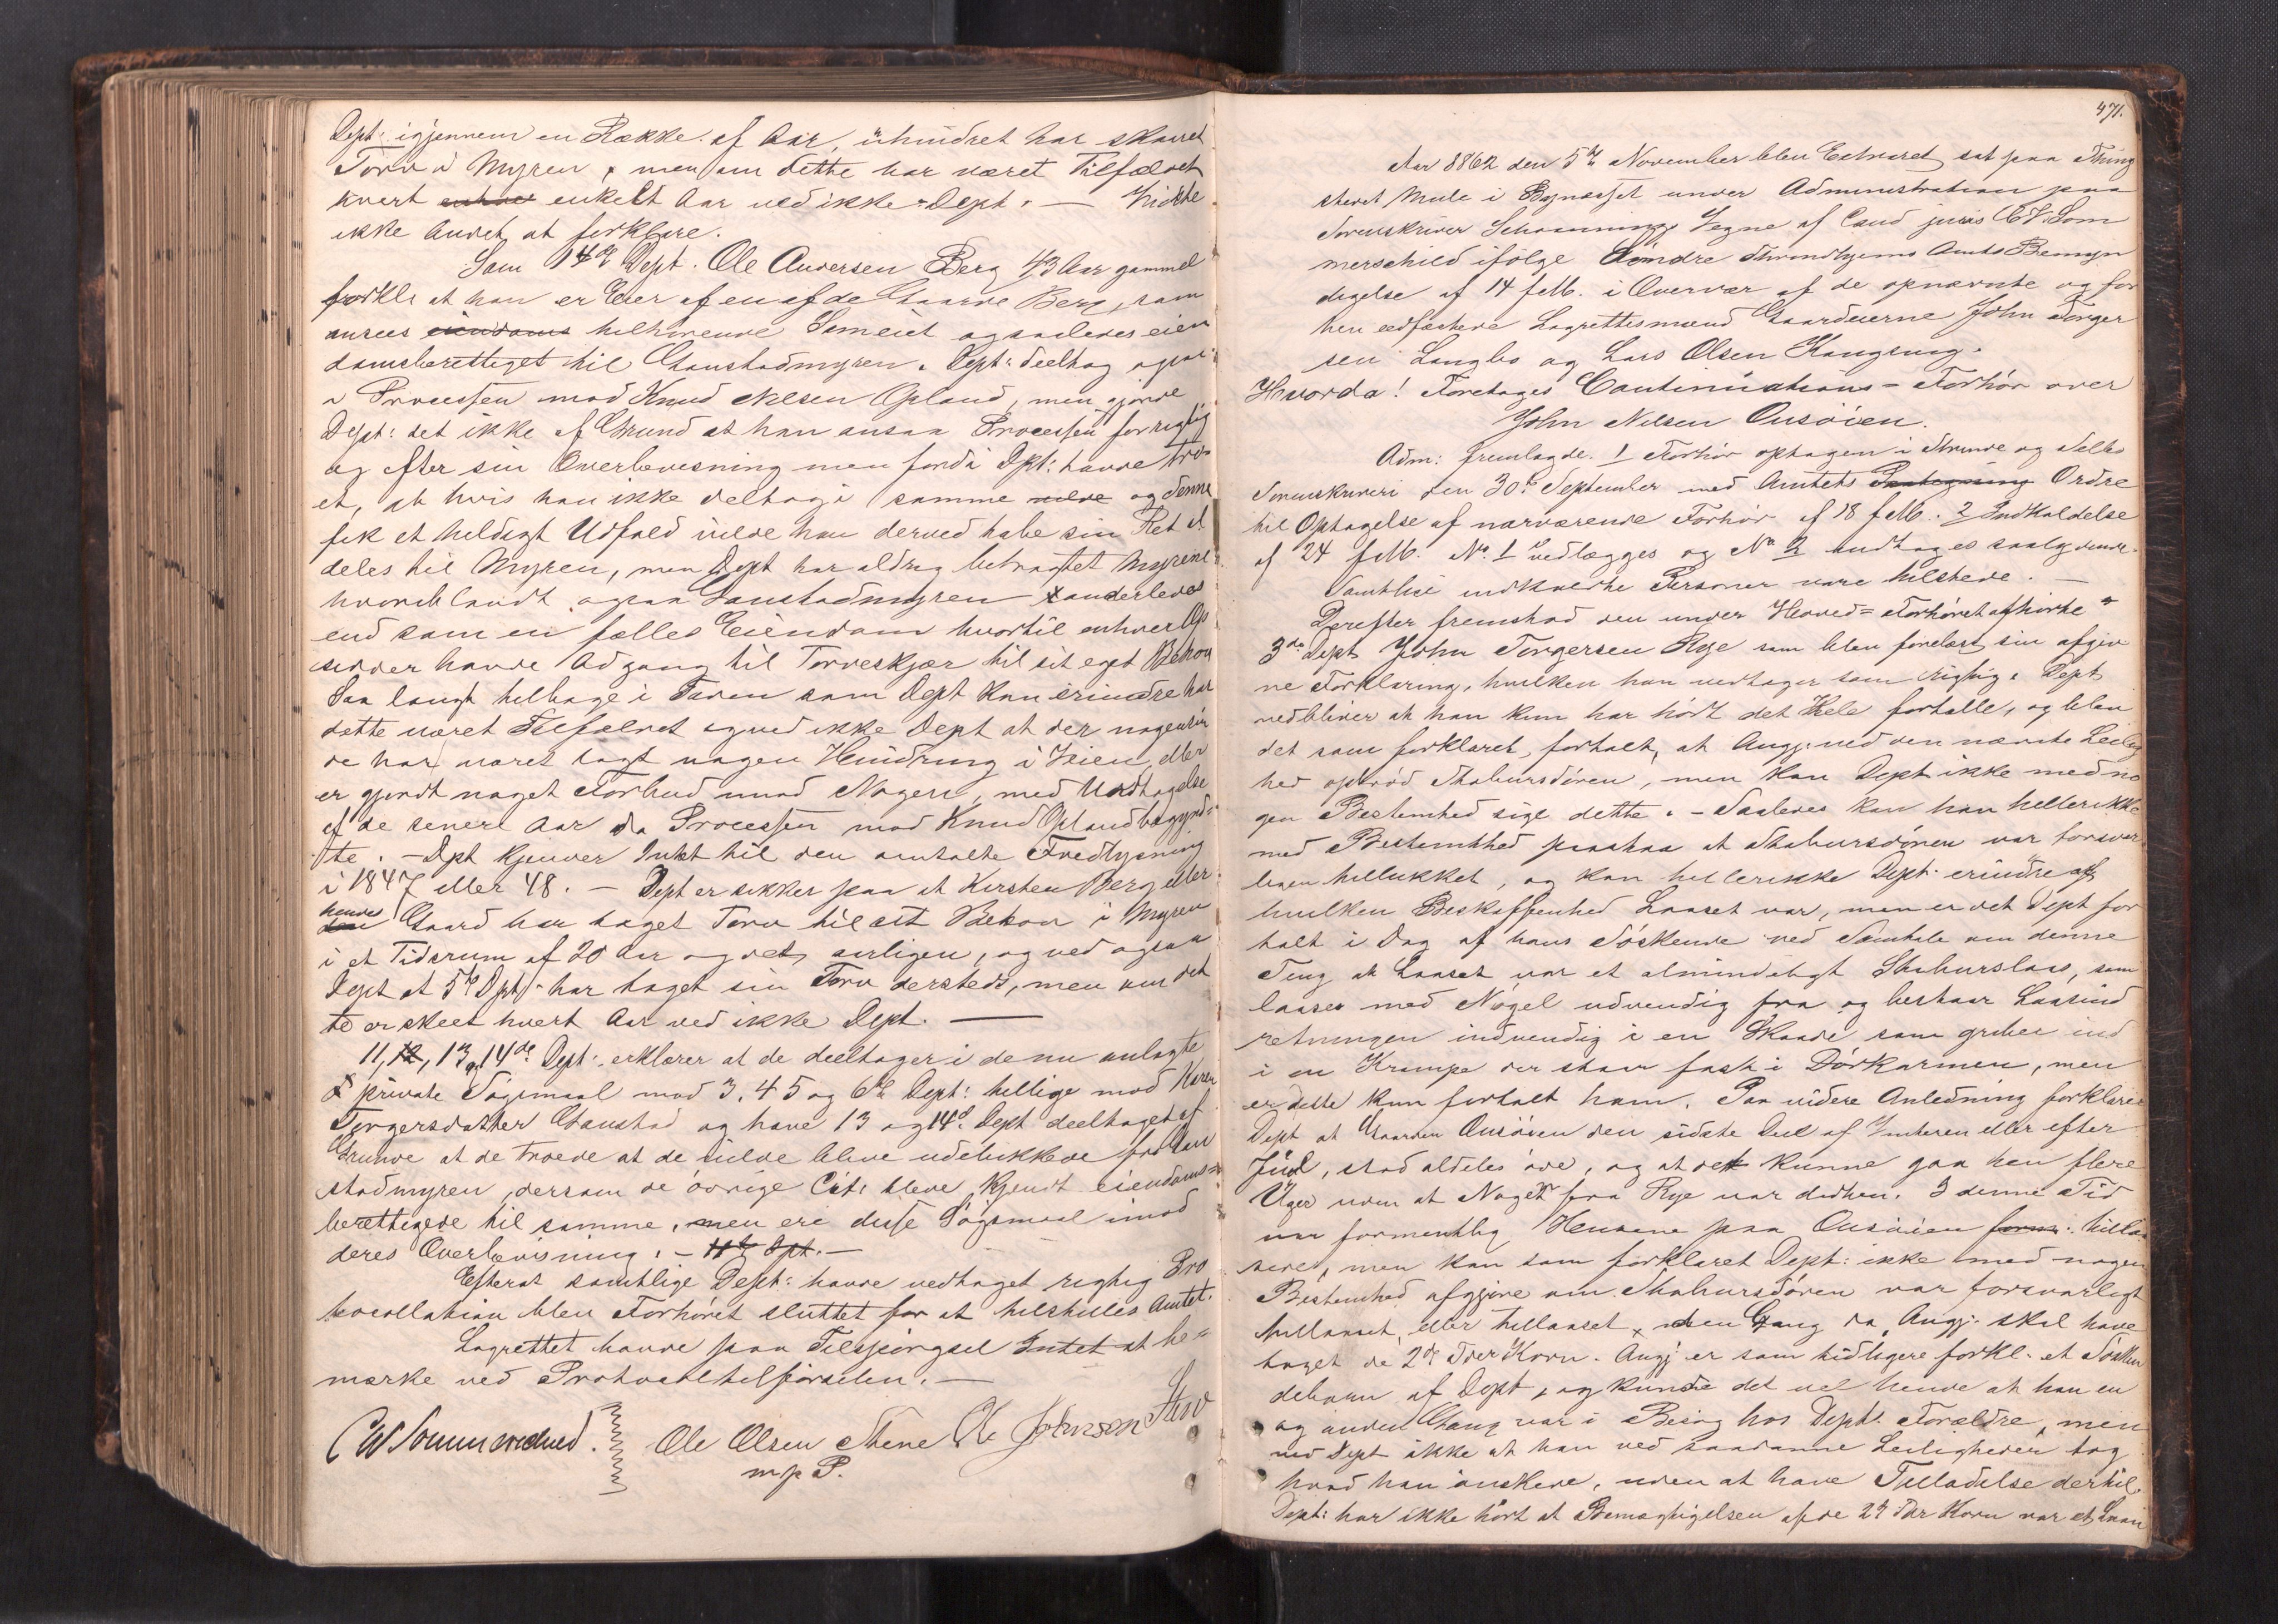 Dept: igjennem en Række af Aar, uhindret har skaaret
Torv i Myren, men om dette har været Tilfældet
hvert enhver enkelt Aar ved ikke Dept. — Vidste
ikke Andet at forklare.
Som 14de Dept. Ole Andersen Berg 43 Aar gammel
forkl: at han er Eier af en af de Gaarde Berg, som
ansees eiendoms tilhørende Sameiet og saaledes eien
domsberettiget til Gaustadmyren. Dept: deeltog ogsaa
i Processen mod Knud Nilsen Opland, men gjorde
Dept: det ikke af Grund at han ansaa Processen for rigtig
og efter sin Overbevisning men fordi Dpt: havde tro
et, at hvis han ikke deltog i samme vilde og denne
fik et heldigt Udfald vilde han derved tabe sin Ret al
deles til Myren, men Dept har aldrig betragtet Myrene
hvoriblandt ogsaa Gaustadmyren anderledes
end som en fælles Eiendom hvortil enhver Op
sidder havde Adgang til Torveskjær til sit eget Behov
Saa langt tilbage i Tiden som Dept kan erindre har
dette været Tilfældet og ved ikke Dept at der nogensin
de har været lagt nogen Hindring i Veien, eller
er gjordt noget Forbud mod Nogen, med Undtagelse
af de senere Aar da Processen mod Knud Opland begynd-
te. – Dpt kjender Intet til den omtalte Fredlysning
i 1847 eller 48. – Dept er sikker paa at Kirsten Berg eller
hendes Gaard har taget Torv til sit Behov i Myren
i et Tidsrum af 20 Aar og det aarligen, og ved ogsaa
Dept at 5te Dpt: har taget sin Torv dersteds, men om det
te er skeet hvert Aar ved ikke Dept. —
11, 12, 13 og 14de Dept: erklærer at de deeltager i de nu anlagte
private Søgsmaal mod 3. 4 5 og 6te Dept: tillige mod Karen
Torgersdatter Gaustad og have 13 og 14d. Dept deeltaget af
Grunde at de troede at de vilde blive udelukkede fra Gau
stadmyren, dersom de øvrige Cit: bleve kjendt eiendoms-
berettigede til samme, men ere disse Søgsmaal imod
deres Overbevisning. – 11te Dpt. —
Efterat samtlige Dept: havde vedtaget rigtig Pro
tocollation blev Forhøret sluttet for at tilstilles Amtet.
Lagrettet havde paa Tilspørgsel Intet at be-
mærke ved Protocoltilførselen. —
CW Sommerschield. Ole Olsen Stene Ole Johnsen
m p P.
471.
Aar 1862 den 5te November blev Extraret sat paa Thing
stedet Mule i Bynæsset under Administration paa
Sorenskriver Schannings Vegne af Cand juris C W Som
merschield ifølge Søndre Throndhjems Amts Bemyn
digelse af 14 f Mb. i Overvær af de opnævnte og for
hen eedfæstede Lagrettesmænd Gaardeierne John Torger
sen Langlo og Lars Olsen Kangsrug.
Hvorda! Foretages Continuations-Forhør over
John Nilsen Onsøien.
Adm: fremlagde. 1 Forhør optagen i Strinde og Selbo
Sorenskriveri den 30te September med Amtets Paategning Ordre
til Optagelse af nærværende Forhør af 18 f Mb. 2 Indkaldelse
af 24 f Mb. No. 1 vedlægges og No 2 indtages saalydende.
Samtlige indkaldte Personer vare tilstede. —
Derefter fremstod den under Hoved-Forhøret afhørte
3de Dept John Torgersen Rye som blev forelæst sin afgiv
ne Forklaring, hvilken han vedtager som rigtig. Dept
vedbliver at han kun har hørt det Hele fortalle, og blev
det som forklaret, fortalt, at Angj: ved den nævnte Leilig
hed opbrød Stabursdøren, men kan Dept ikke med no
gen Bestemhed sige dette. – Saaledes kan han heller ikke
med Bestemthed paastaa at Stabursdøren var forsvar
ligen tillukket, og kan heller ikke Dept: erindre af
hvilken Beskaffenhed Laaset var, men er det Dept for
talt i Dag af hans Søskende ved Samtale om denne
Ting at Laaset var et almindeligt Staburslaas, som
laases med Nøgel udvendig fra og bestaar Laasind
retningen indvendig i en Skaade som griber ind
i en Krampe der staar fast i Dørkarmen, men
er dette kun fortalt ham. Paa videre Anledning forklarer
Dept at Gaarden Onsøien den sidste Deel af Vinteren eller efter
Juul, stod aldeles øde, og at det kunne gaa hen flere
Uger uden at Noget fra Rye var didhen. I denne Tid
var formentlig Husene paa Onsøien tillaa
sede, men kan som forklaret Dept: ikke med nogen
Bestemhed afgjøre om Stabursdøren var forsvarligt
tillaaset, eller tillaaset, den Gang da Angj: skal have
taget de 2de Tdr Korn. Angj er som tidligere forkl. et Søsken
debarn af Dept, og kunde det vel hende at han en
og anden Gang var i Besøg hos Depts Forældre, men
ved Dept ikke at han ved saadanne Leiligheder tog
hvad han ønskede, uden at have Tilladelse dertil.
Dept: har ikke hørt at Bemægtigelsen af de 2de Tdr Korn var et Laan